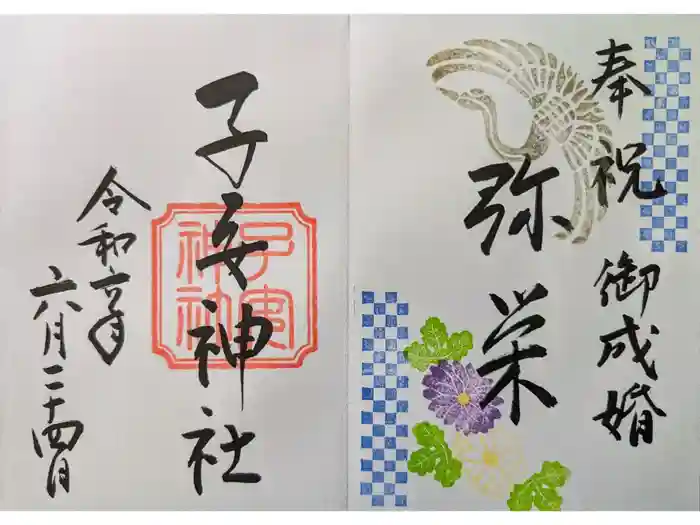 奉祝 御成婚
弥栄
子安神社
子安
神社
令和六年
六月二十四日